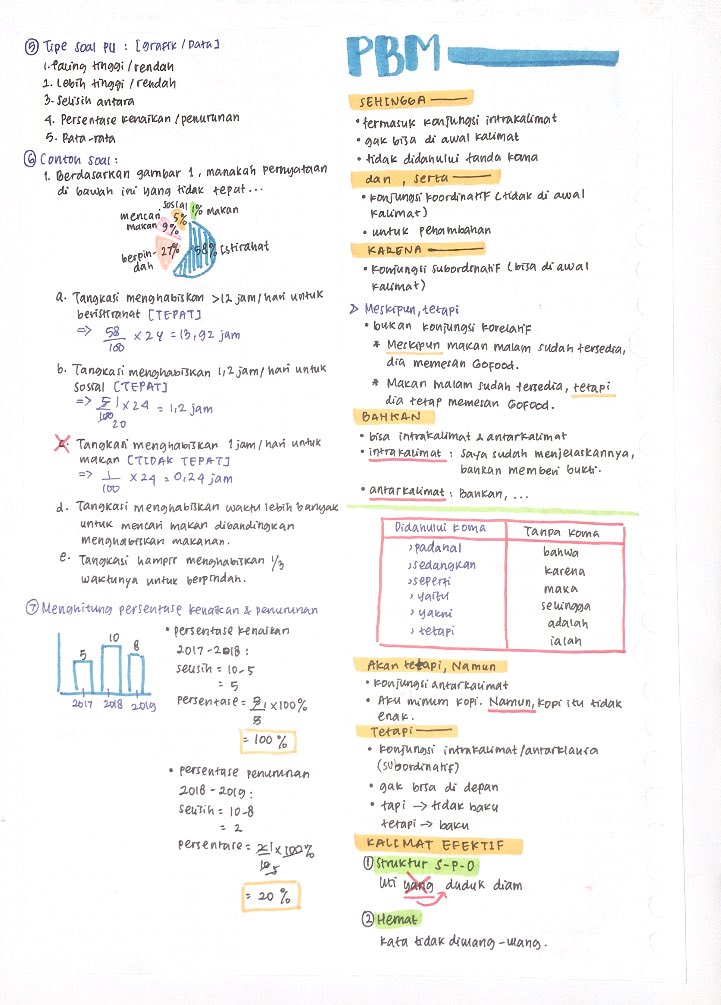 ⑤ Tipe Soal PU : [Grafik / Data]
1. Paling tinggi / rendah
2. Lebih tinggi / rendah
3. Selisih antara
4. Persentase kenaikan / penurunan
5. Rata-rata
⑥ Contoh soal :
1. Berdasarkan gambar 1, manakah pernyataan
di bawah ini yang tidak tepat...
sosial 5%
1% makan
mencari makan 9%
berpin-dah 27%
58% istirahat
a. Tangkasi menghabiskan >12 jam/hari untuk
beristirahat [TEPAT]
=> 58/100 x 24 = 13,92 jam
b. Tangkasi menghabiskan 1,2 jam/hari untuk
sosial [TEPAT]
=> 5/100 1/20 x 24 = 1,2 jam
c. Tangkasi menghabiskan 1 jam/hari untuk
makan [TIDAK TEPAT]
=> 1/100 x 24 = 0,24 jam
d. Tangkasi menghabiskan waktu lebih banyak
untuk mencari makan dibandingkan
menghabiskan makanan.
e. Tangkasi hampir menghabiskan 1/3
waktunya untuk berpindah.
⑦ Menghitung persentase kenaikan & penurunan
5 10 8
2017 2018 2019
• persentase kenaikan
2017-2018 :
selisih = 10-5
= 5
persentase = 5/5 1 x 100%
= 100 %
• persentase penurunan
2018 - 2019 :
selisih = 10-8
= 2
persentase = 2/10 1/5 x 100%
= 20 %
PBM
SEHINGGA
• termasuk konjungsi intrakalimat
• gak bisa di awal kalimat
• tidak didahului tanda koma
dan , serta
• konjungsi koordinatif (tidak di awal
kalimat)
• untuk penambahan
KARENA
• konjungsi subordinatif (bisa di awal
kalimat)
> Meskipun, tetapi
• bukan konjungsi korelatif
* Meskipun makan malam sudah tersedia,
dia memesan GoFood.
* Makan malam sudah tersedia, tetapi
dia tetap memesan GoFood.
BAHKAN
• bisa intrakalimat & antarkalimat
• intrakalimat : Saya sudah menjelaskannya,
bahkan memberi bukti.
• antarkalimat : Bahkan, ...
Didahului koma
Tanpa koma
, padahal
, sedangkan
, seperti
, yaitu
, yakni
, tetapi
bahwa
karena
maka
sehingga
adalah
ialah
Akan tetapi, Namun
• konjungsi antarkalimat
• Aku minum kopi. Namun, kopi itu tidak
enak.
Tetapi
• konjungsi intrakalimat/antarklausa
(subordinatif)
• gak bisa di depan
• tapi → tidak baku
tetapi → baku
KALIMAT EFEKTIF
① Struktur S-P-O
Uti yang duduk diam
② Hemat
kata tidak diulang-ulang.